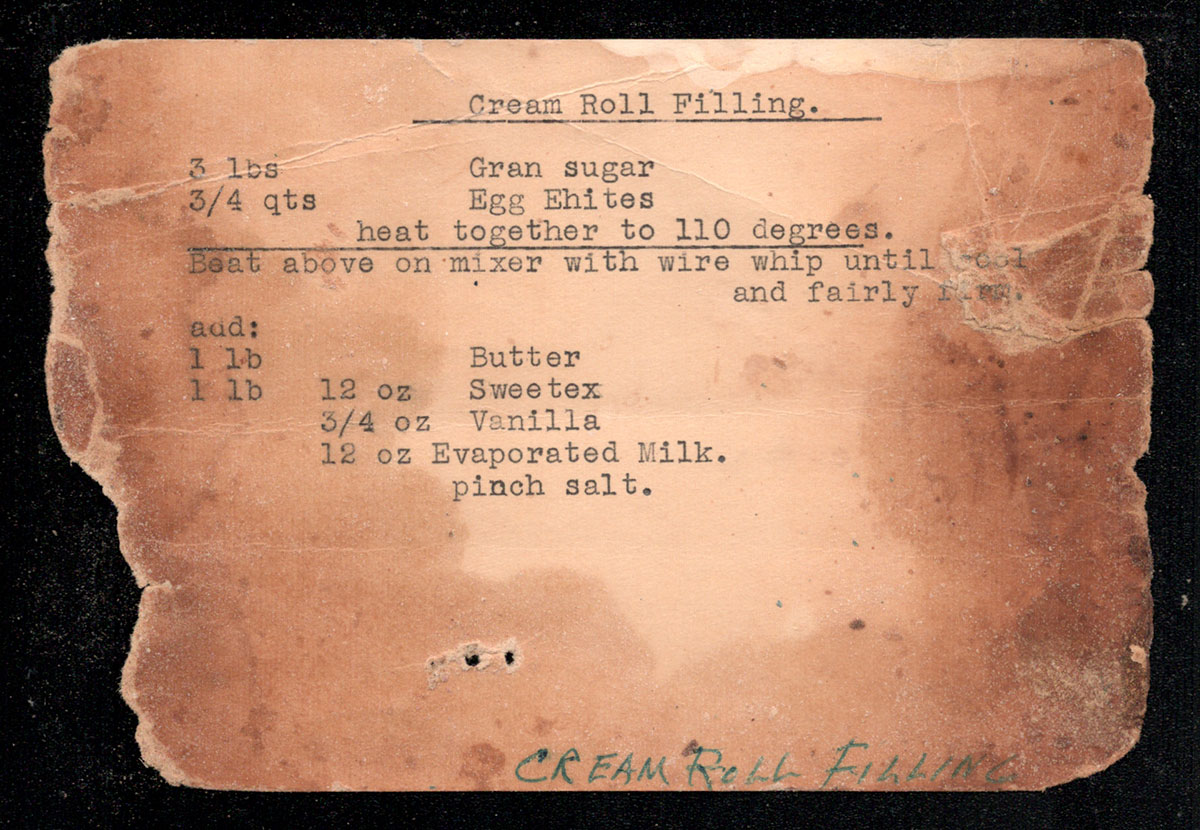 Cream Roll Filling.
3 lbs Gran sugar
3/4 qts Egg Ehites
heat together to 110 degrees.
Beat above on mixer with wire whip until cool
and fairly firm.
add:
1 lb Butter
1 lb 12 oz Sweetex
3/4 oz Vanilla
12 oz Evaporated Milk.
pinch salt.
CREAM ROLL FILLING